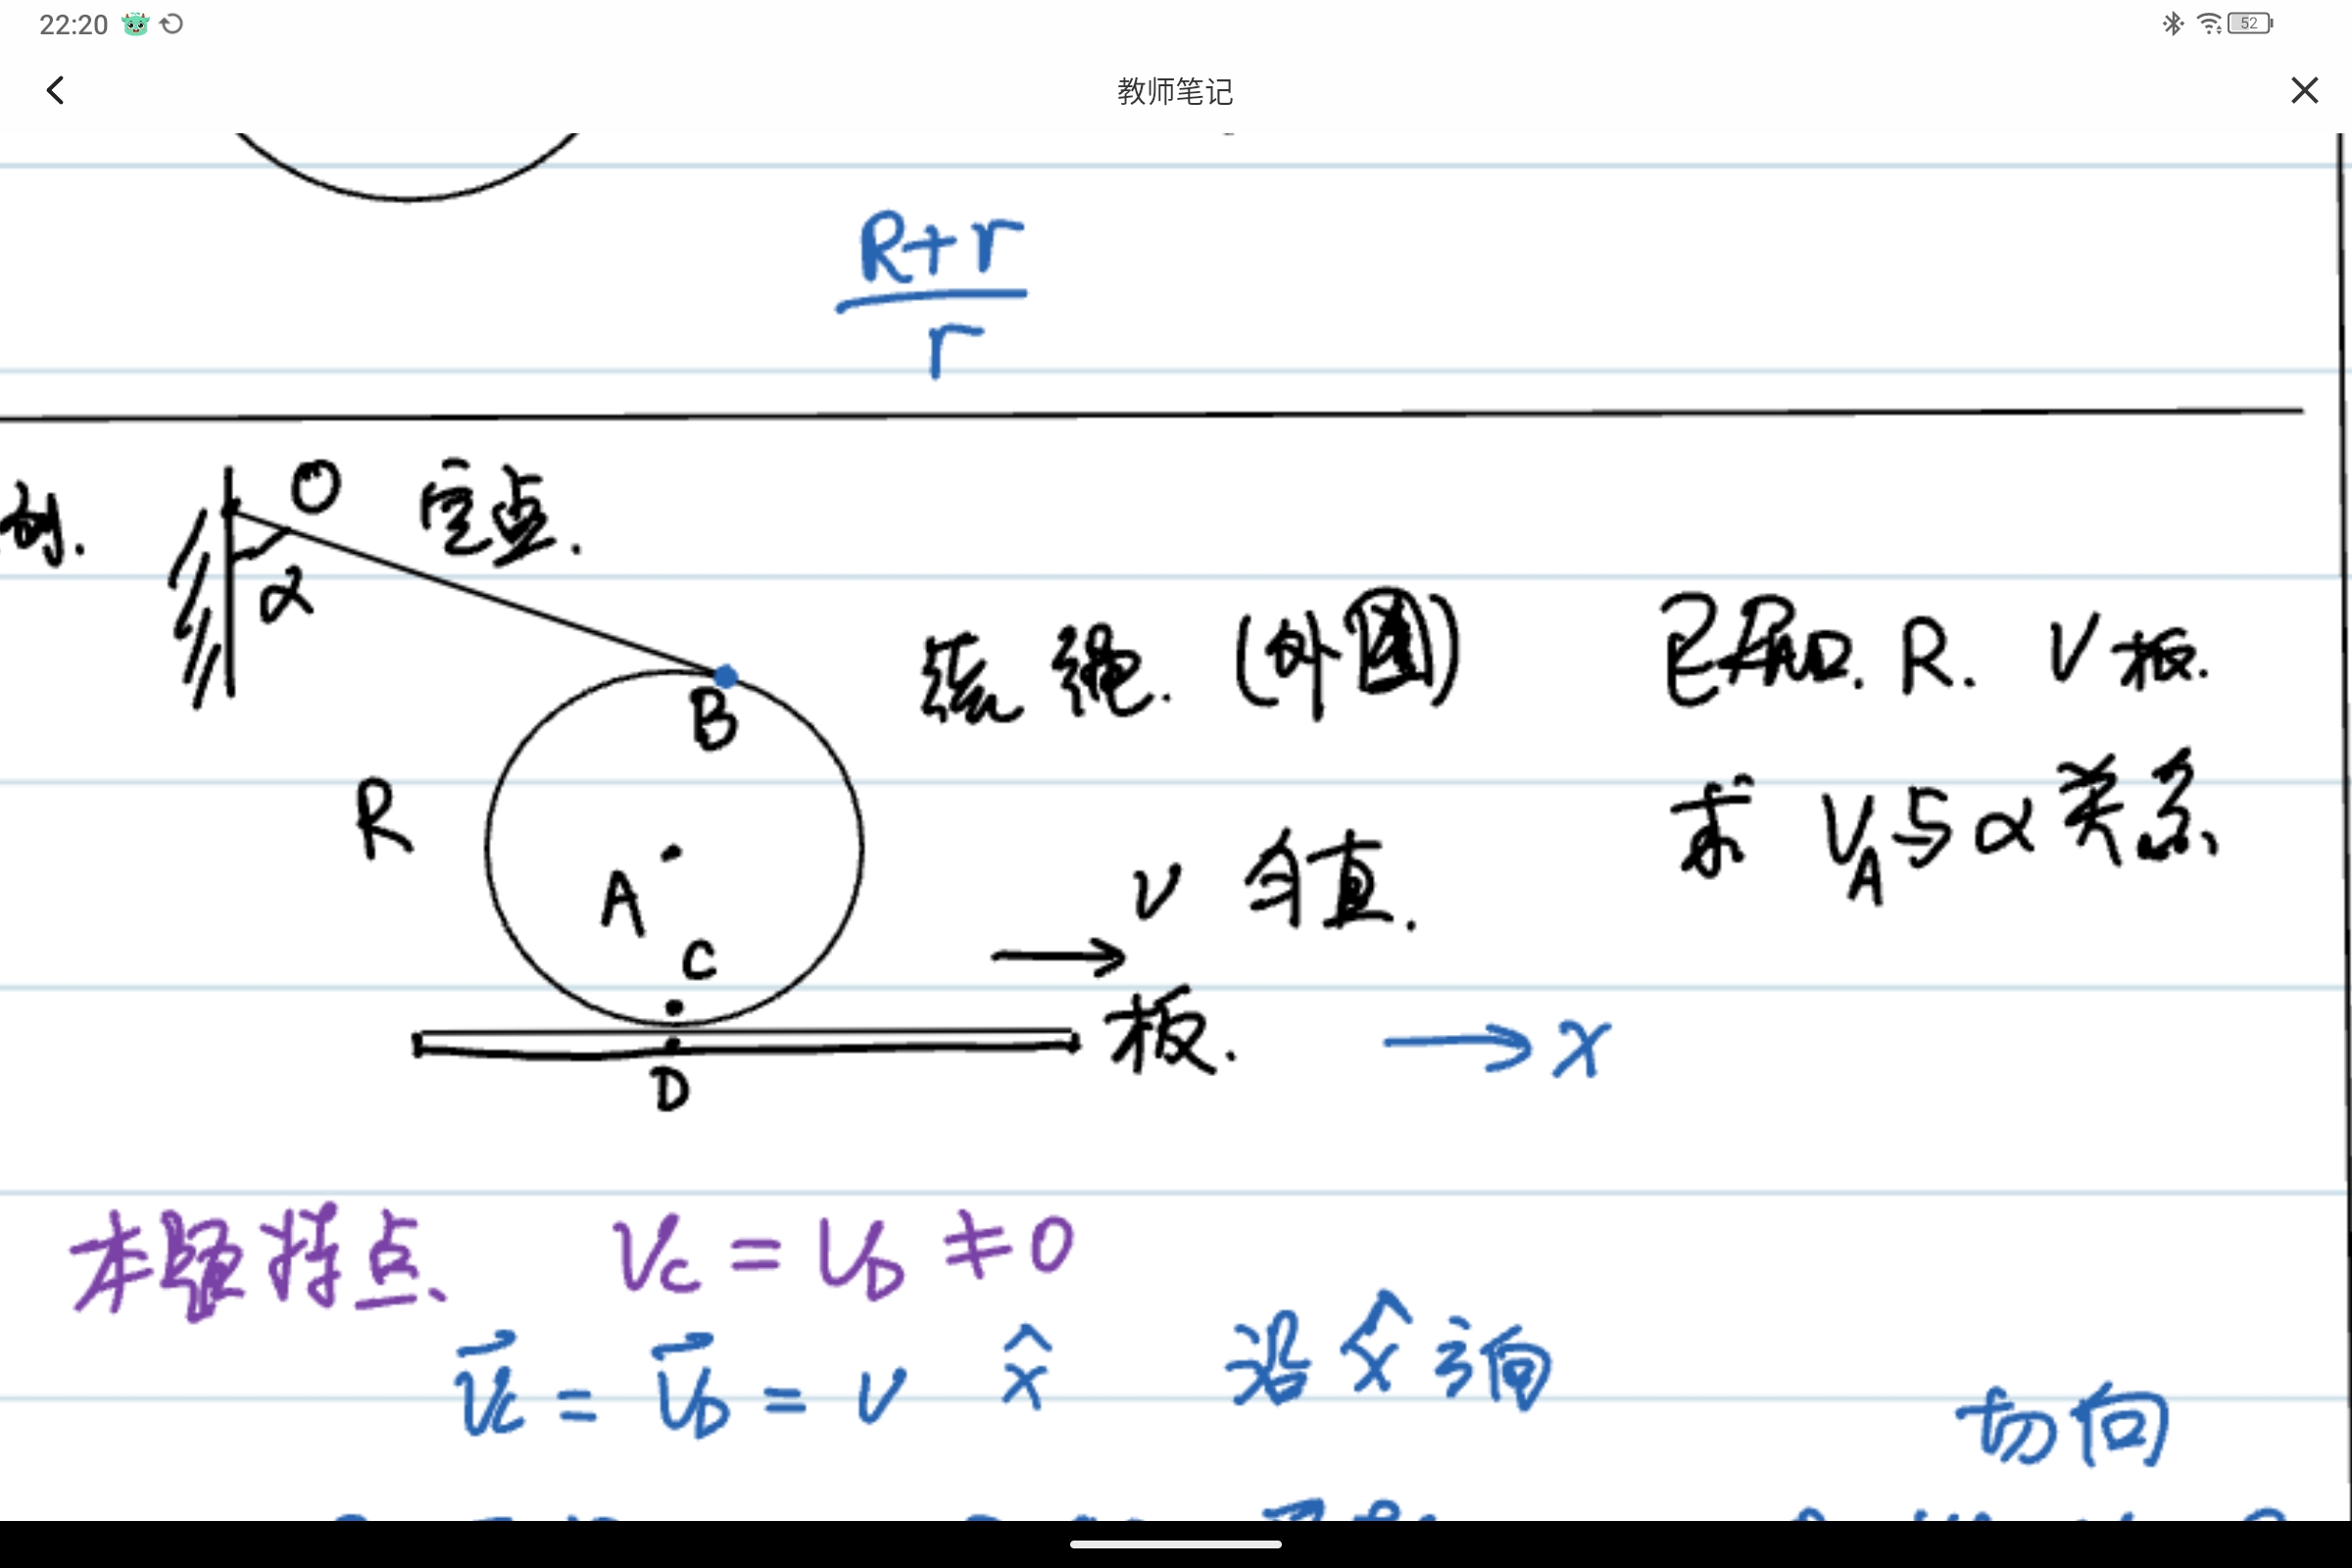 22:20
52
教师笔记
R+r
r
例.
O 定点.
α
B
绕绳.(外圈) 已知. R. V板.
R
求 VA与α关系
A
C
v 匀直.
板.
→ x
D
本题特点、 Vc = VD ≠ 0
Vc = VD = v x̂ 沿 x̂ 方向
切向